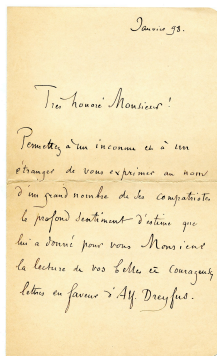 Janvier 98.
Très honoré Monsieur!
Permettez à un inconnu et à un
étranger de vous exprimer au nom
d'un grand nombre de ses compatriotes
le profond sentiment d'estime que
lui a donné pour vous Monsieur
la lecture de vos belles et courageuses
lettres en faveur d'Alf. Dreyfus.